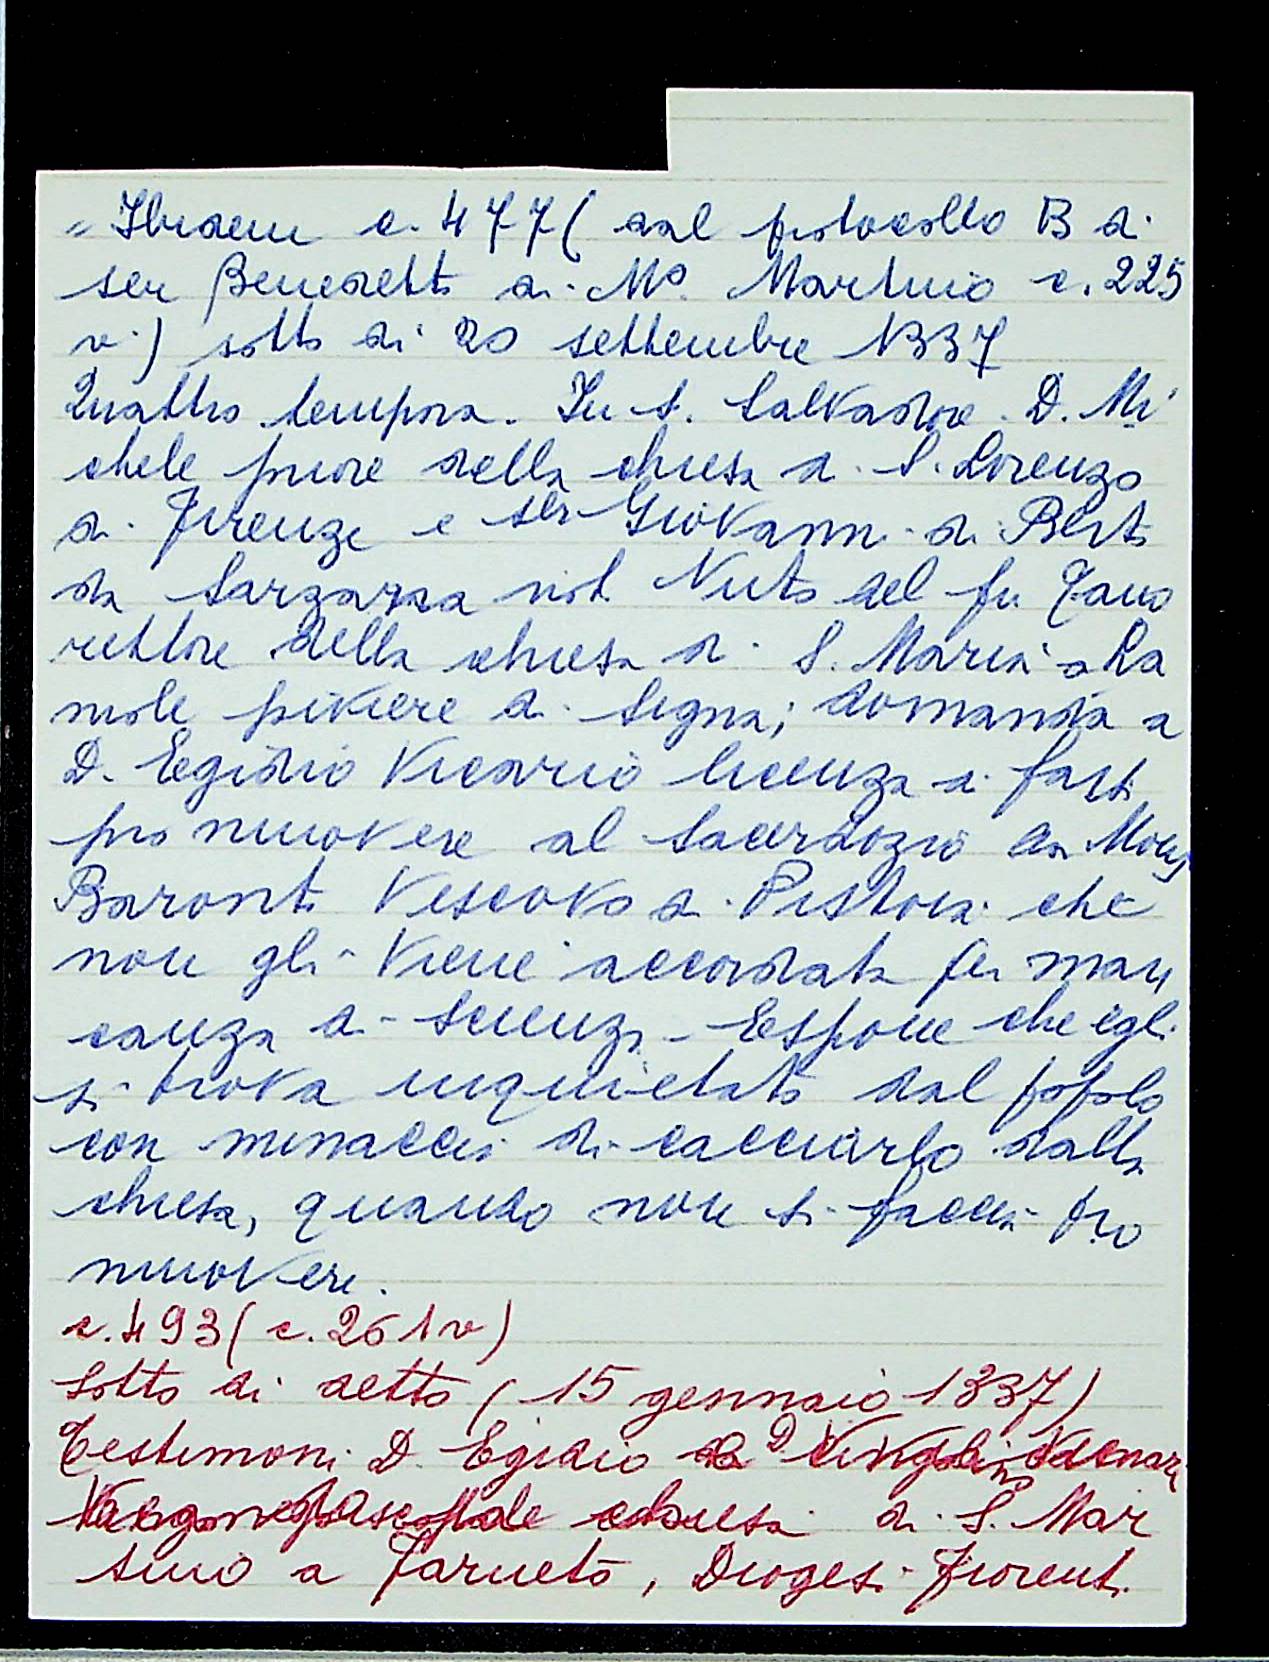 "Ibidem c. 477 ( dal protocollo B di
ser Benedetto di M° Martino c. 225
v.) sotto di 20 settembre 1337
Quattro tempora. In S. Salvadore. D. Mi
chele priore della chiesa di S. Lorenzo
di Firenze e ser Giovanni di Berto
da Sarzana not. Nuto del fu Tano
rettore della chiesa di S. Maria a La
mole piviere di Signa; domanda a
D. Egidio Vicario licenza di farsi
promuovere al Sacerdozio da Mons
Baronto Vescovo di Pistoia che
non gli viene accordata per man
canza di scienza. Espone che egli
si trova inquietato dal popolo
con minaccia di cacciarlo dalla
chiesa, quando non si faccia pro
muovere.
c. 493 ( c. 261 v)
Sotto di detto ( 15 gennaio 1337)
Testimoni D. Egidio
chiesa di S. Mar
tino a Farneto, Diogesi Fiorent.